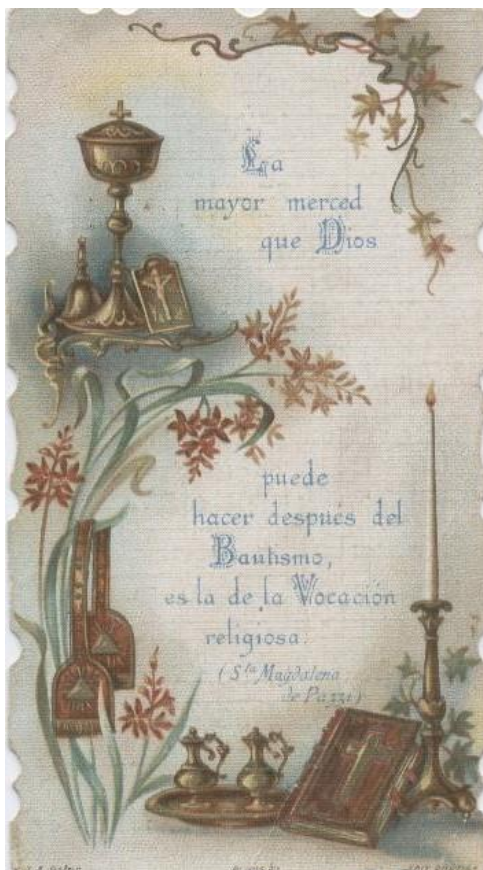 La
mayor merced
que Dios
puede
hacer después del
Bautismo,
es la de la Vocación
religiosa.
(Sta Magdalena
de Pazzi)